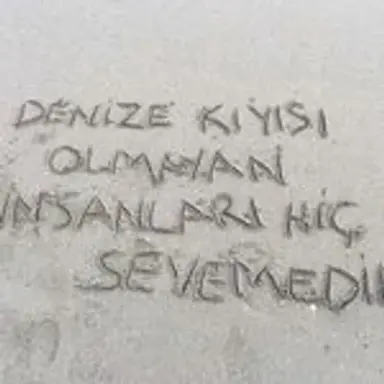 DENİZE KIYISI
OLMAYAN
İNSANLARI HİÇ
SEVEMEDİ